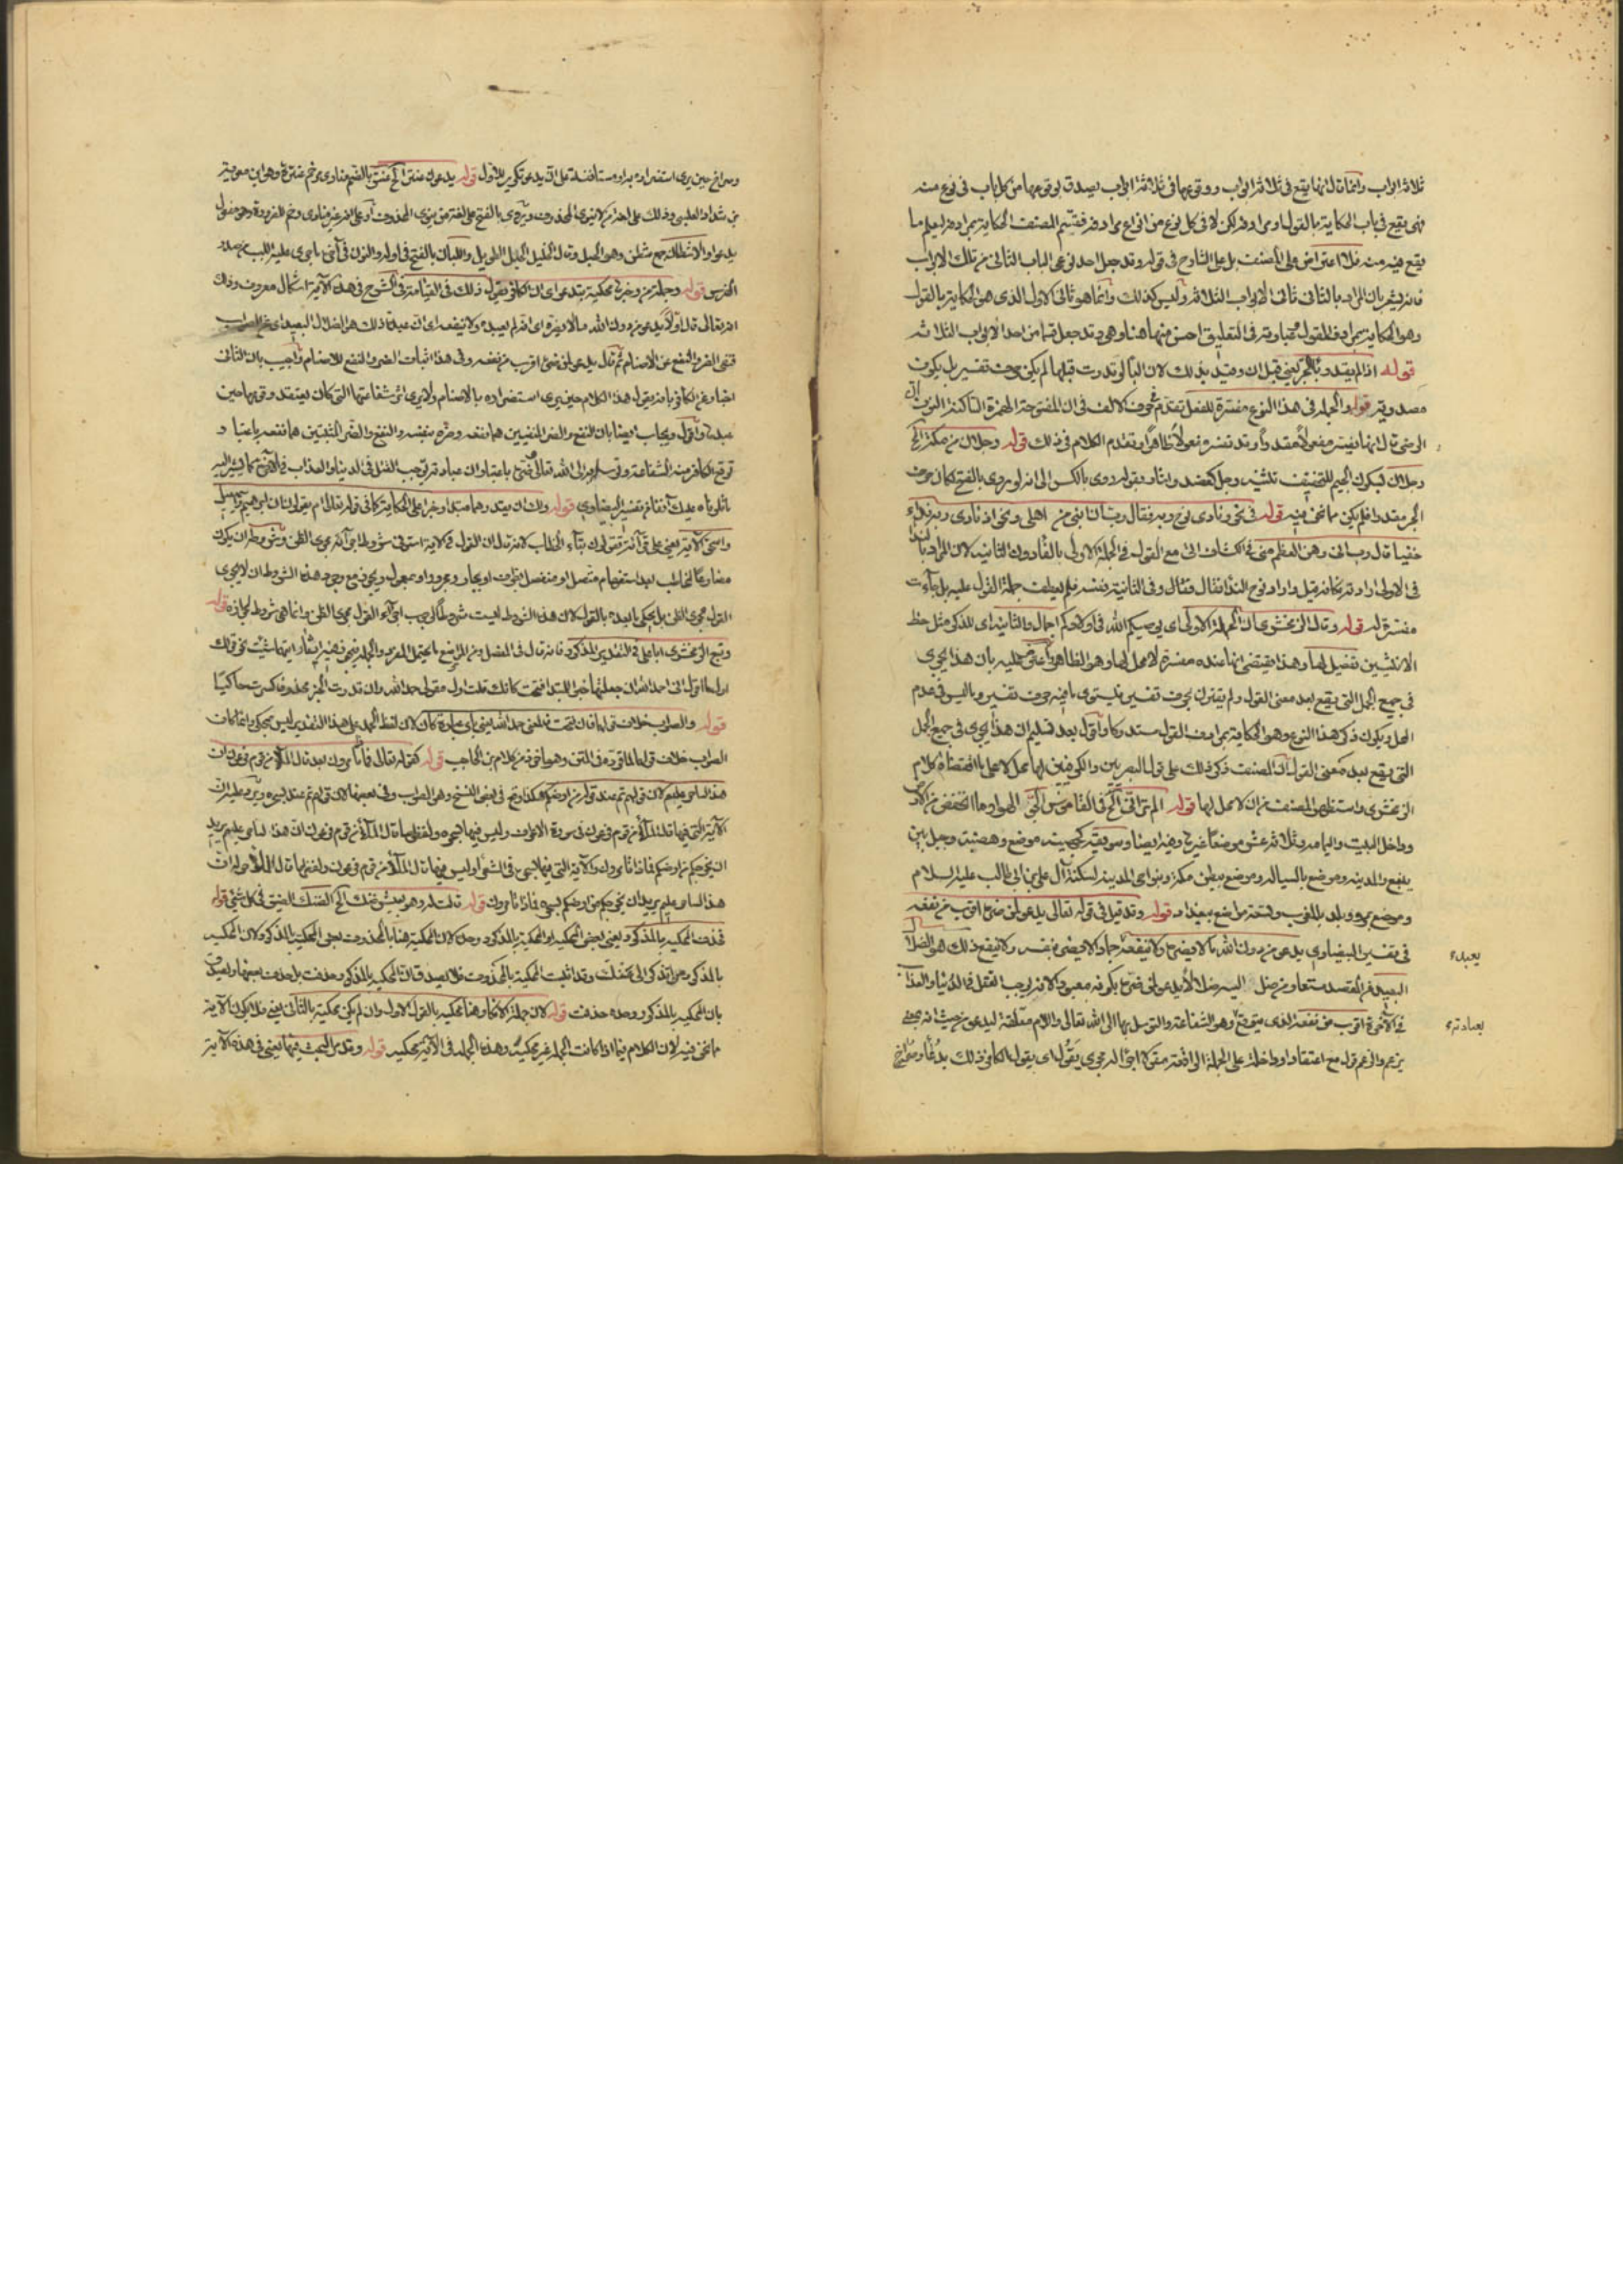 ثلاثة ابواب وانما قال انها يقع في ثلاثة ابواب ووقوعها في ثلاثة ابواب يصدق بوقوعها من كل باب في نوع منه
فهي يقع في باب الحكاية بالقول او مرادفه لكن لا في كل نوع من انواع مرادفه فقسم المصنف الحكاية بمرادفه ليعلم ما
يقع فيه منه فلا اعتراض على المصنف بل على الشارح في قوله وقد جعل احد نوعي الباب الثاني من تلك الابواب
فانه يشعر بان المراد بالثاني ثاني الابواب الثلاثة وليس كذلك وانما هو ثاني الاول الذي هو الحكاية بالقول
وهو الحكاية بمرادف القول في التعليق احسن منها هنا وهي وقد جعل قسما من احد الابواب الثلاثة
قوله اذا لم يقدر باء الجر يعني قبل ان وقيد بذلك لان الباء لو قدرت قبلها لم يكن حرف تفسير بل يكون
مصدرية قوله والجملة في هذا النوع مفسرة للفعل تقدم في حرف الالف في ان المفتوحة الهمزة الساكنة النون ان
الرضي قال انها تفسر مفعولا مقدرا وقد تفسر مفعولا ظاهرا وتقدم الكلام في ذلك قوله رجلان من مكة الخ
رجلان بسكون الجيم للتخفيف تثنية رجل كعضد واشار بقوله روي بالكسر الى انه لو روي بالفتح لكان حرف
الجر مقدرا فلم يكن مما نحن فيه قوله في نحو ونادى نوح ربه فقال رب ان ابني من اهلي ونحو اذ نادى ربه نداء
خفيا قال رب اني وهن العظم مني في الكشاف اتى مع القول في الجملة الاولى بالفاء دون الثانية لان المراد بالنداء
في الاولى ارادته فكانه قيل واراد نوح النداء فقال وفي الثانية نفسه فلم يعطف جملة القول عليه بل جاءت
مفسرة له قوله وقال الزمخشري ان الجملة الاولى اي يوصيكم الله في اولادكم اجمال والثانية اي للذكر مثل حظ
الانثيين تفصيل لها وهذا يقتضي انها عنده مفسرة لا محل لها وهو الظاهر
في جميع الجمل التي يقع بعد معنى القول ولم يقترن بحرف تفسير فيستوي ما فيه حرف تفسير وما ليس في عدم
المحل ويكون ذكر هذا النوع وهو الحكاية بمرادف القول مستدركا واقول بعد تسليم ان هذا يجري في جميع الجمل
التي يقع بعد معنى القول ان المصنف ذكر ذلك على قول البصريين والكوفيين لها محل لا على ما اقتضاه كلام
الزمخشري واستظهره المصنف من ان لا محل لها قوله الم تر اني الخ في القاموس الجو الهواء وما انخفض من الارض
وداخل البيت واليمامة وثلاثة عشر موضعا غيرها وفيه ايضا وسويقة كجهينة موضع وهضبة وجبل بين
ينبع والمدينة وموضع بالسيالة وموضع ببطن مكة وبنواحي المدينة يسكنه آل علي بن ابي طالب عليه السلام
وموضع بمرو وبلد بالمغرب وتسعة مواضع ببغداد قوله وقد قيل في قوله تعالى يدعو لمن ضره اقرب من نفعه
في تفسير البيضاوي يدعو من دون الله ما لا يضره وما لا ينفعه جمادا لا يضر بنفسه ولا ينفع ذلك هو الضلال
البعيد عن المقصد مستعار من ضلال
في الآخرة اقرب من نفعه الذي يتوقع وهو الشفاعة والتوسل بها الى الله تعالى واللام معلقة ليدعو من حيث انه بمعنى
يزعم والزعم قول مع اعتقاد او داخلة على الجملة الواقعة مقولا اجراء له مجرى يقول اي يقول الكافر ذلك بدعاء وصراخ
يعبده
بعبادته
وصراخ حين يرى استضراره به او مستأنفة على ان يدعو تكرير للاول قوله يدعون عنتر الخ عنتر بالضم منادى مرخم عنترة وهو ابن معوية
بن شداد العبسي وذلك على احد
يدعوا والاشطان جمع شطن وهو الحبل وقال الخليل الحبل الطويل واللبان بالفتح في اوله والنون في آخره ما جرى عليه اللبب من صدر
الفرس قوله وجملة من وخبره محكية بيدعو اي ان الكافر يقول ذلك في القيامة في الشرح في هذه الآية اشكال معروف وذلك
انه تعالى قال اولا يدعو من دون الله ما لا يضره اي ان لم يعبده وما لا ينفعه اي ان عبده ذلك هو الضلال البعيد اي عن الصواب
فنفى الضر والنفع عن الاصنام ثم قال يدعو لمن ضره اقرب من نفعه وفي هذا اثبات الضر والنفع للاصنام واجيب بان الثاني
اخبار عن الكافر بانه يقول هذا الكلام حين يرى استضراره بالاصنام ولا يرى اثر شفاعتها التي كان يعتقد وقوعها حين
عبدها واقول ويجاب ايضا بان النفع والضر المنفيين هما نفعه وضره بنفسه والنفع والضر المثبتين هما نفعه باعتبار
توقع الكافر منه الشفاعة وتوسله الى الله تعالى وضره باعتبار ان عبادته توجب القتل في الدنيا والعذاب في الآخرة كما يشير اليه
ما تلوناه عليك آنفا من تفسير البيضاوي قوله ولك ان يقدرهما مبتدا وخبرا على الحكاية كما في قوله تعالى ام يقولون ان ابراهيم واسمعيل
واسحق الآية يعني على قراءة تقولون بتاء الخطاب لانه قال ان القول في الآية استوفى شروط اجرائه مجرى الظن وشروطه ان يكون
مضارعا لمخاطب بعد استفهام متصل او منفصل بظرف او بجار ومجرور او بمعمول ويجوز مع وجود هذه الشروط ان لا يجري
القول مجرى الظن بل يحكى ما بعده بالقول لان هذه الشروط ليست شروطا لوجوب اجراء القول مجرى الظن وانما هي شروط لجوازه قوله
وتبع الزمخشري ابا علي في التقدير المذكور فانه قال في المفصل ومن المواضع ما يحتمل المفرد والجملة فيجوز فيه ايقاع ايتهما شئت نحو قولك
اول ما اقول اني احمد الله ان جعلتها خبر المبتدا فتحت كانك قلت اول مقولي حمد الله وان قدرت الخبر محذوفا كسرت حاكيا
قوله والصواب خلاف قولهما فان فتحت فالمعنى حمد الله يعني باي عبارة كان لان لفظ الحمد على هذا التقدير ليس بمحكي وانما كان
الصواب خلاف قولهما لما قرره في المتن وهو مأخوذ من كلام ابن الحاجب قوله كقوله تعالى فماذا تأمرون بعد قال الملأ من قوم فرعون ان
هذا لساحر عليم لان قولهم تم عند قوله من ارضكم هكذا وقع في بعض النسخ وهو الصواب وفي بعضها لان قولهم تم عند بسحره ويرد عليه ان
الآية التي فيها قال الملأ من قوم فرعون في سورة الاعراف وليس فيها بسحره ولفظها قال الملأ من قوم فرعون ان هذا لساحر عليم يريد
ان يخرجكم من ارضكم فماذا تأمرون والآية التي فيها بسحره في الشعراء وليس فيها قال الملأ من قوم فرعون ولفظها قال للملأ حوله ان
هذا لساحر عليم يريد ان يخرجكم من ارضكم بسحره فماذا تأمرون قوله قالت له وهو بعيش ضنك الخ الضنك الضيق في كل شيء قوله
فحذف المحكية بالمذكور يعني بعض المحكية
بالمذكور
بان المحكية بالمذكور وحده حذفت قوله لان جملة الانكار هنا محكية بالقول الاول وان لم يكن محكية بالثاني يعني فلا يكون الآية
مما نحن فيه لان الكلام فيما اذا كانت الجملة غير محكية وهذه الجملة في الآية محكية قوله وقد مر البحث فيها يعني في هذه الآية